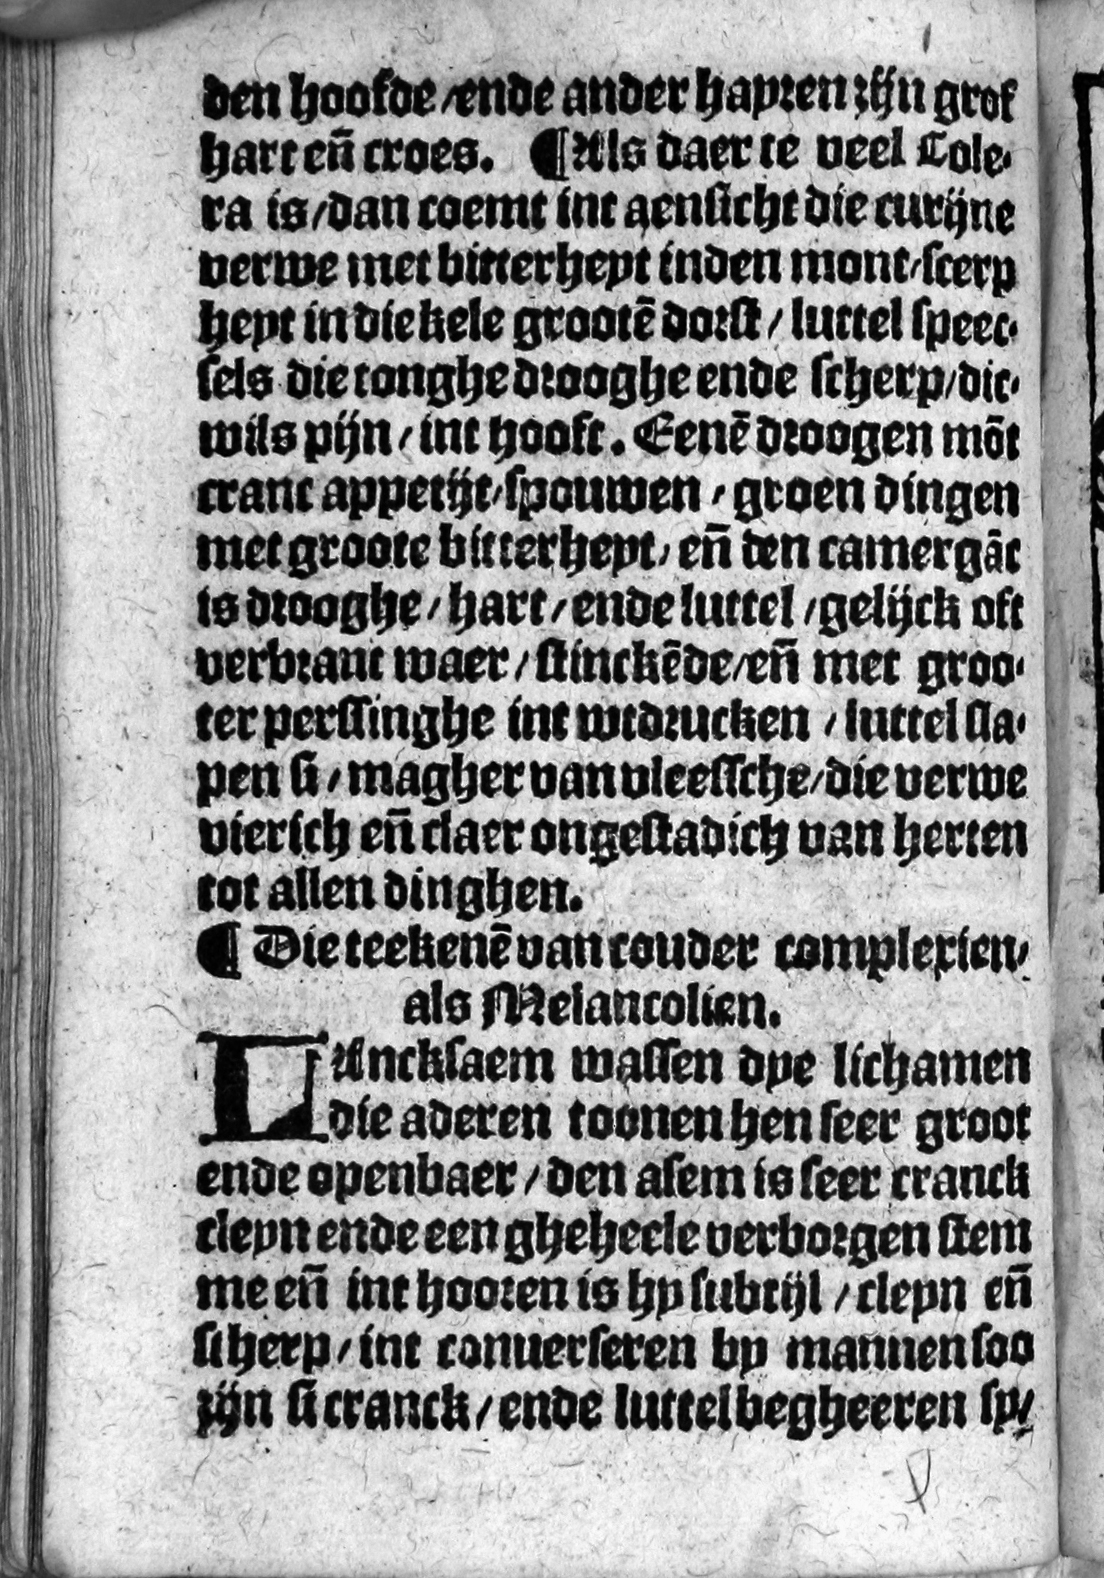 den hoofde/ende ander hayren zijn grof
hart eñ croes. ¶ Als daer te veel Cole-
ra is/dan coemt int aensicht die cutijne
verwe met bitterheyt inden mont/scerp
heyt in die kele grootē dorst/ luttel speec-
sels die tonghe drooghe ende scherp/dic-
wils pijn/ int hooft. Eenē droogen mōt
cranc appetijt/spouwen/ groen dingen
met groote bitterheyt/ eñ den camergāc
is drooghe/ hart/ ende luttel/gelijck oft
verbrant waer/ stinckēde/eñ met groo-
ter perssinghe int wtdrucken/ luttel sla-
pen si/ magher van vleessche/die verwe
vierich eñ claer ongestadich van herten
tot allen dinghen.
¶ Die teekenē van couder complexien/
als Melancolien.
LAncksaem wassen dye lichamen
die aderen toonen hen seer groot
ende openbaer/ den asem is seer cranck
cleyn ende een gheheele verborgen stem
me eñ int hooren is hy subtijl/ cleyn eñ
scherp/ int conuerseren by mannen soo
zijn si cranck/ ende luttel begheeren sy/